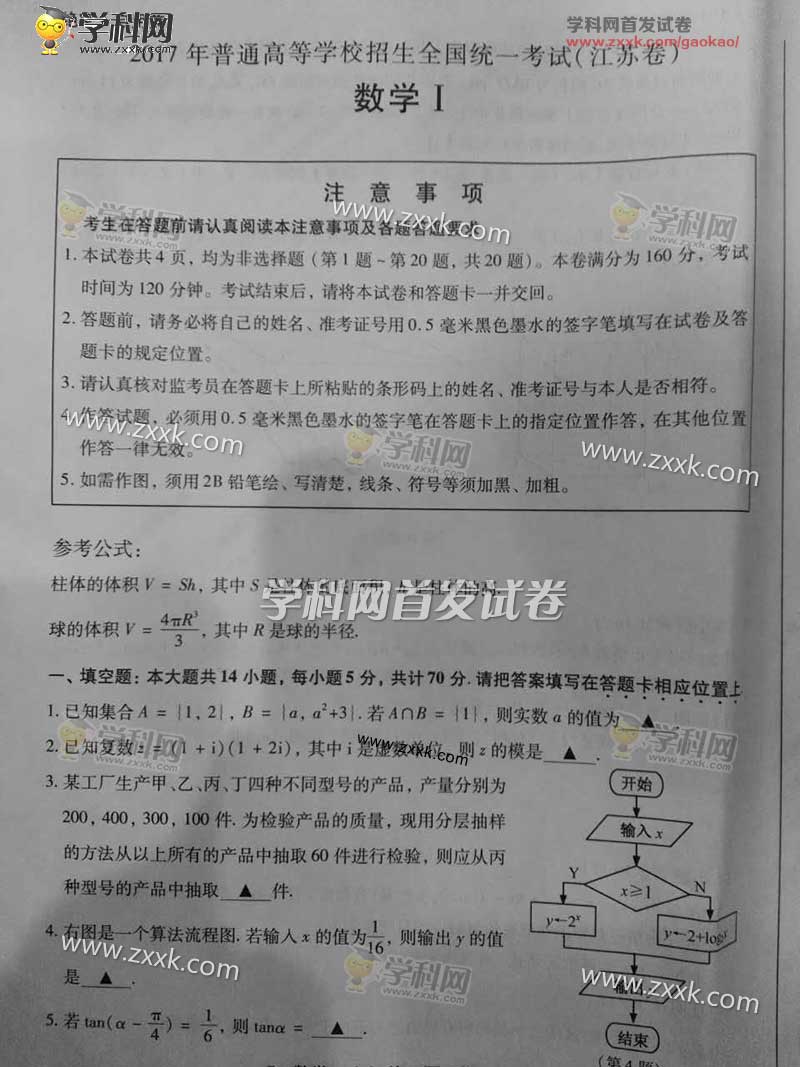 学科网
学科网首发试卷
www.zxxk.com/gaokao/
2017 年普通高等学校招生全国统一考试(江苏卷)
数学 I
注 意 事 项
考生在答题前请认真阅读本注意事项及各题答题要求
1. 本试卷共 4 页，均为非选择题（第 1 题 ~ 第 20 题，共 20 题）。本卷满分为 160 分，考试
时间为 120 分钟。考试结束后，请将本试卷和答题卡一并交回。
2. 答题前，请务必将自己的姓名、准考证号用 0.5 毫米黑色墨水的签字笔填写在试卷及答
题卡的规定位置。
3. 请认真核对监考员在答题卡上所粘贴的条形码上的姓名、准考证号与本人是否相符。
4. 作答试题，必须用 0.5 毫米黑色墨水的签字笔在答题卡上的指定位置作答，在其他位置
作答一律无效。
5. 如需作图，须用 2B 铅笔绘、写清楚，线条、符号等须加黑、加粗。
参考公式：
柱体的体积 V = Sh，其中 S
学科网首发试卷
球的体积 V = 4πR³/3，其中 R 是球的半径.
一、填空题：本大题共 14 小题，每小题 5 分，共计 70 分. 请把答案填写在答题卡相应位置上
1. 已知集合 A = {1, 2}，B = {a, a²+3}. 若 A∩B = {1}，则实数 a 的值为 ▲
2. 已知复数 z = (1 + i)(1 + 2i)，其中 i 是虚数单位，则 z 的模是 ▲ .
3. 某工厂生产甲、乙、丙、丁四种不同型号的产品，产量分别为
200, 400, 300, 100 件. 为检验产品的质量，现用分层抽样
的方法从以上所有的产品中抽取 60 件进行检验，则应从丙
种型号的产品中抽取 ▲ 件.
4. 右图是一个算法流程图. 若输入 x 的值为 1/16，则输出 y 的值
是 ▲ .
5. 若 tan(α - π/4) = 1/6，则 tanα = ▲ .
开始
输入 x
x≥1
Y
N
y←2ˣ
y←2+log
输出
结束
(第 4 题)
www.zxxk.com